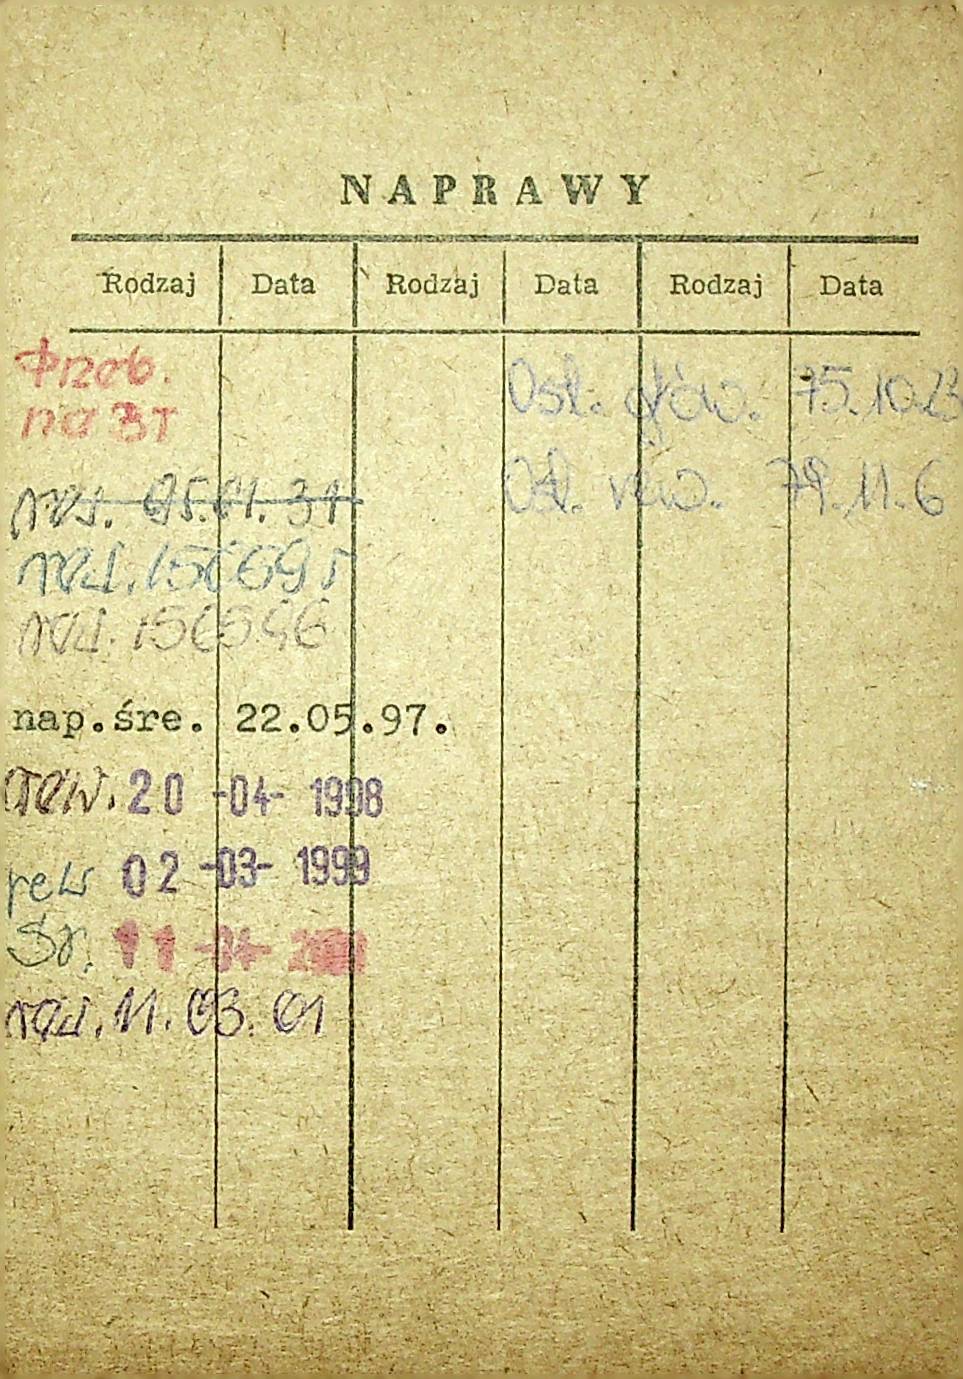 NAPRAWY
Rodzaj Data Rodzaj Data Rodzaj Data
Przeb.
na 3T
Ost. głów. 75.10.23
Ost. rew. 79.11.6
rew. 95.01.31
rew.
rew.
nap.śre. 22.05.97.
rew. 20 -04- 1998
rew 02 -03- 1999
Śr. 11 -04-
rew. 11.03.01